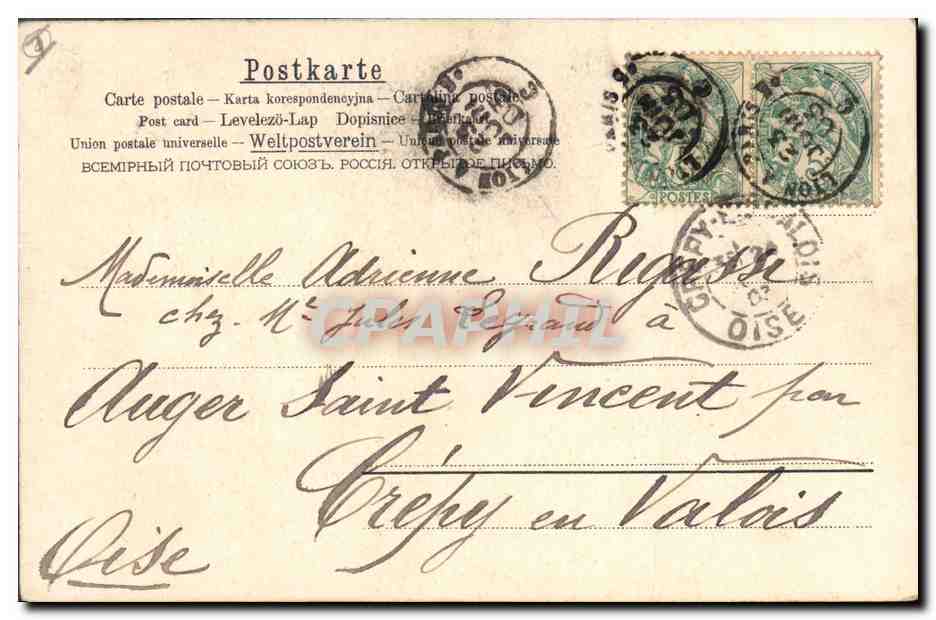 Postkarte
Carte postale — Karta korespondencyjna — Cartolina postale
Post card — Levelezö-Lap Dopisnice — Brefkort
Union postale universelle — Weltpostverein — Unione postale universale
ВСЕМІРНЫЙ ПОЧТОВЫЙ СОЮЗЪ. РОССІЯ. ОТКРЫТОЕ ПИСЬМО.
PARIS
POSTES
CRÉPY-EN-VALOIS
OISE
Mademoiselle Adrienne
chez Mr Jules Legrand à
CPAPHIL
Auger Saint Vincent par
Crépy en Valois
Oise